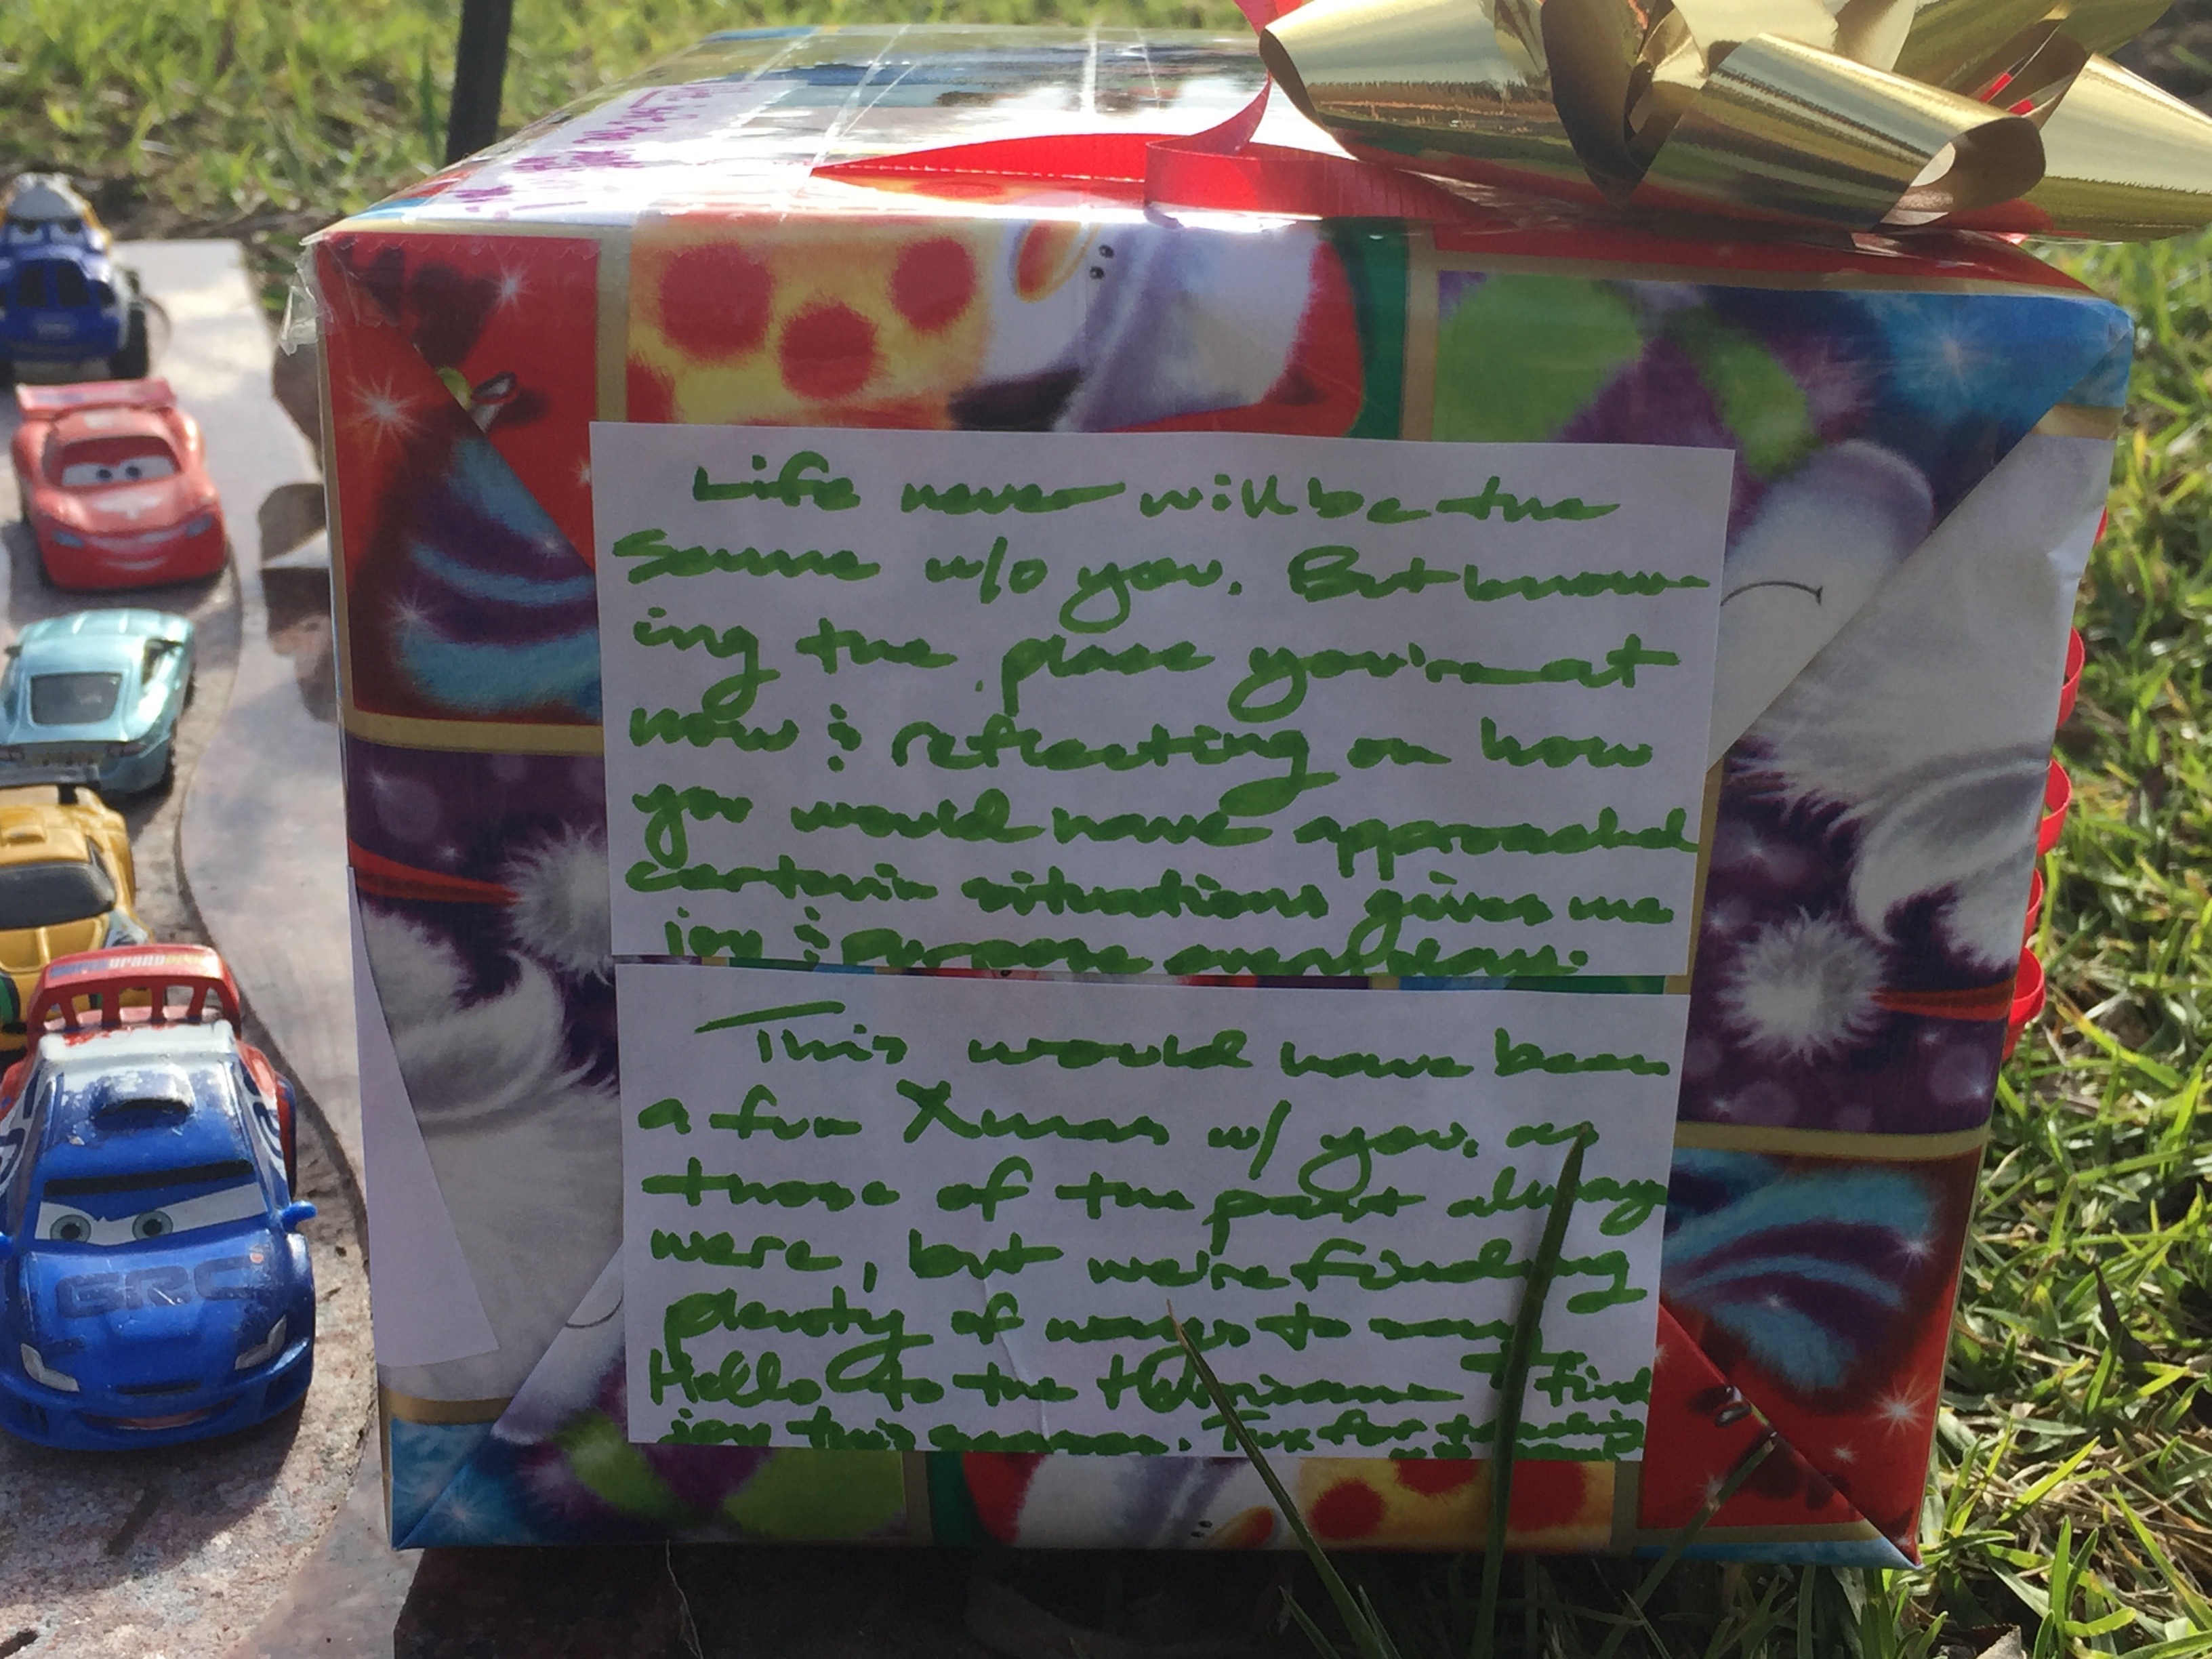 Life never will be the
same w/o you. But know-
ing the place you're at
now & reflecting on how
you would have approached
certain situations gives me
joy & purpose
This would have been
a fun Xmas w/ you, as
those of the past always
were, but we're finding
plenty of ways to
Hello to the & find
joy this season. Thx for
GRC